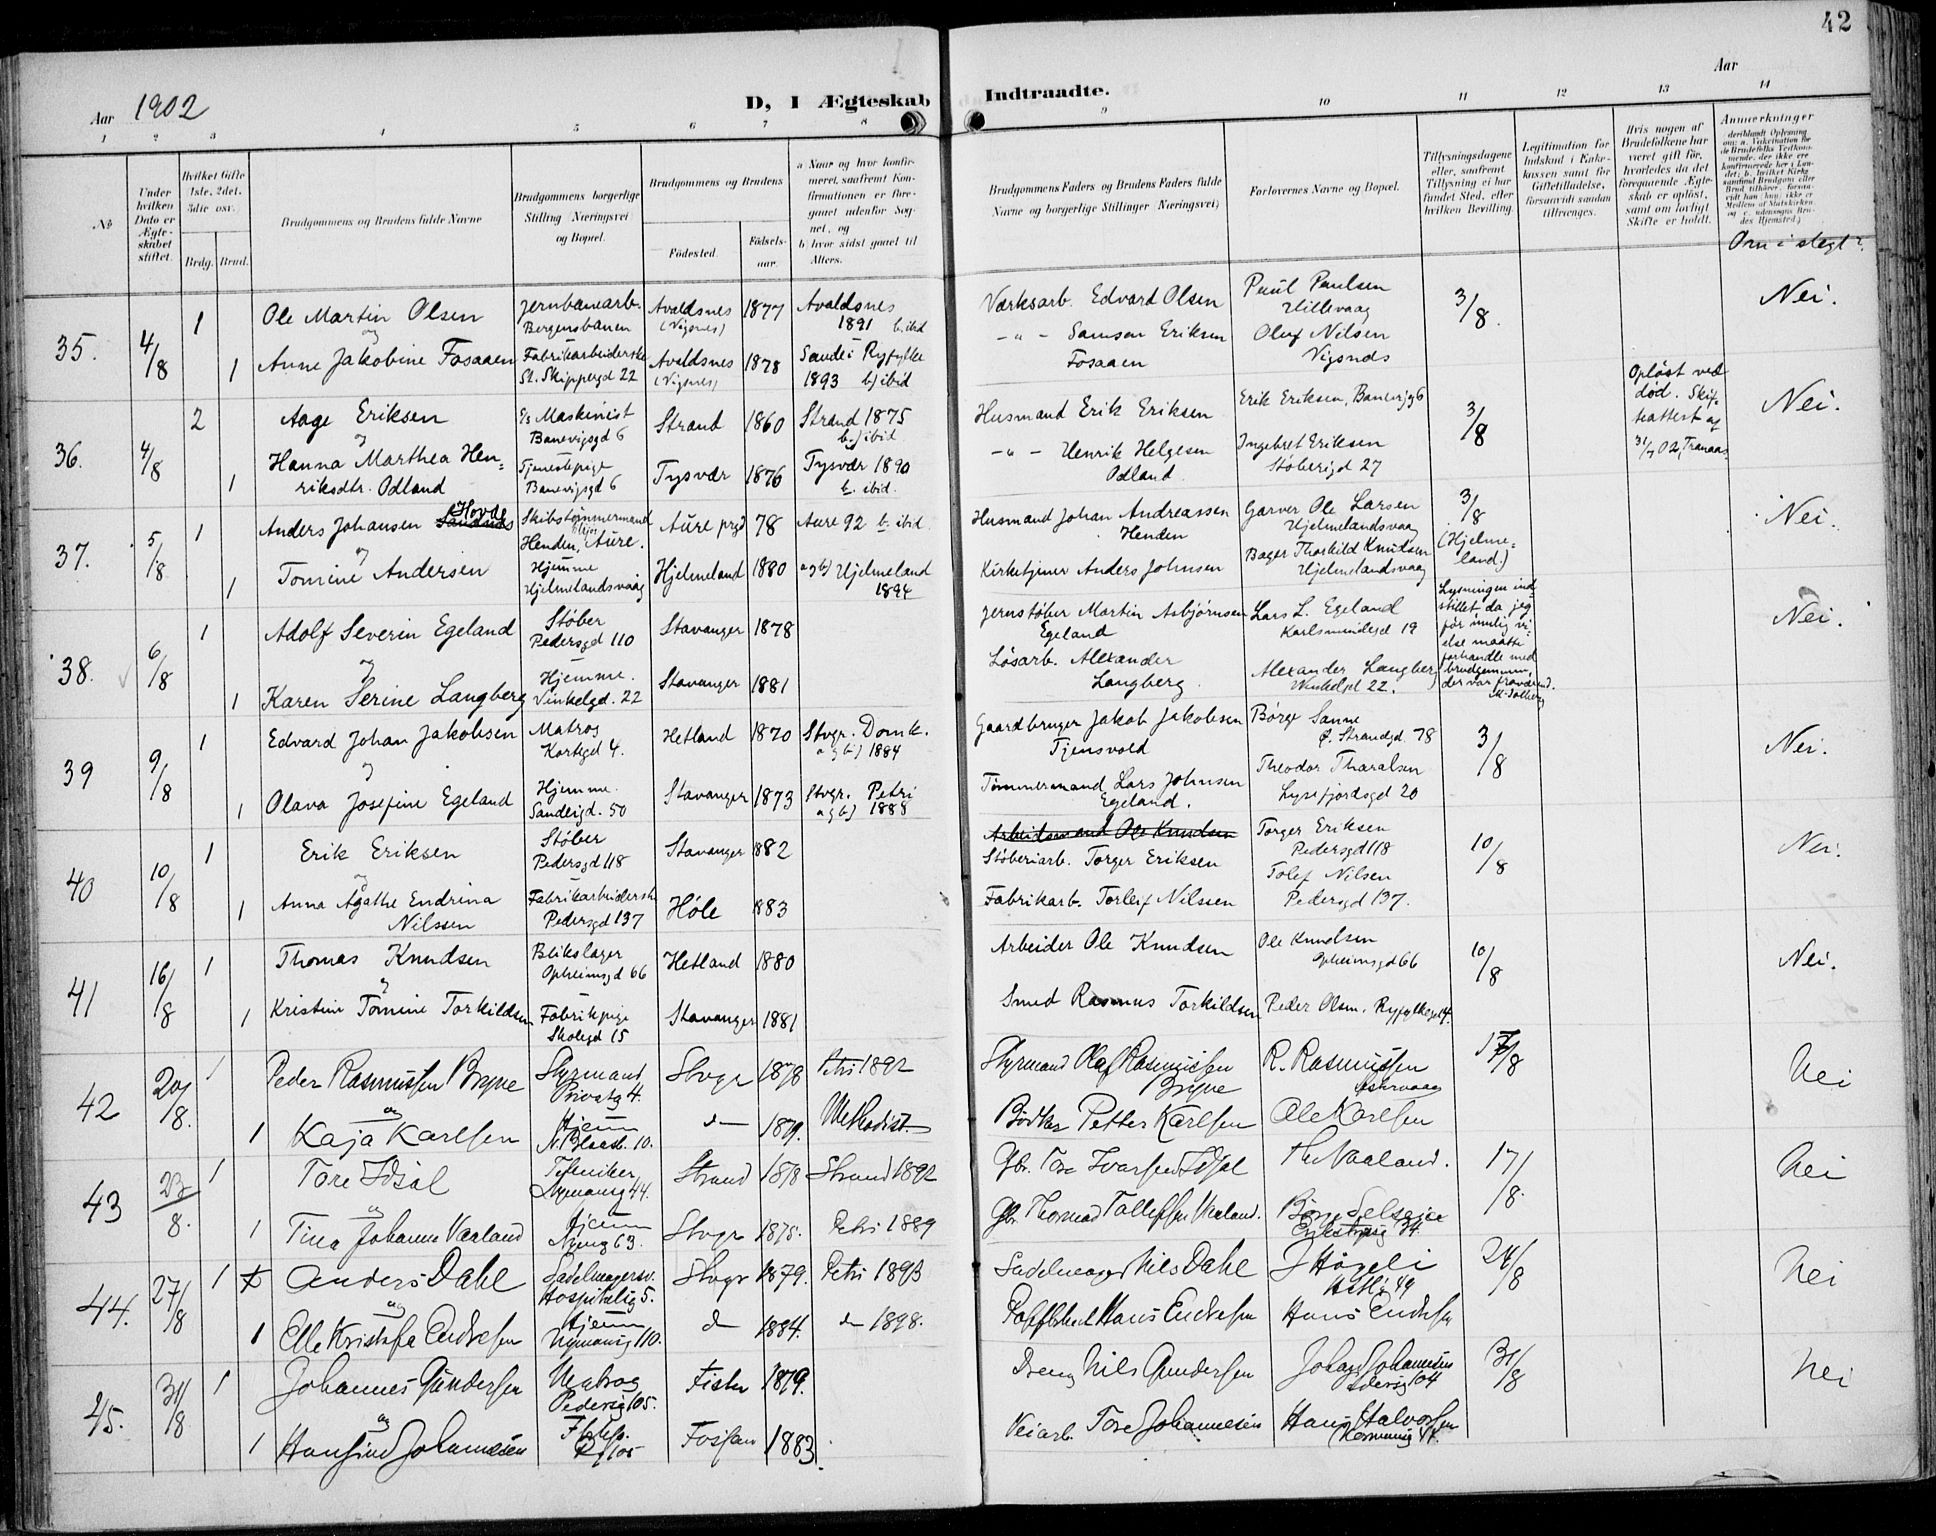 42
Aar 1902
D, I Ægteskab Indtraadte.
Aar
1 2 3 4 5 6 7 8 9 10 11 12 13 14
No
Under hvilken Dato er Ægteskabet stiftet.
Hvilket Gifte 1ste, 2det, 3die osv.
Brdg. Brud.
Brudgommens og Brudens fulde Navne
Brudgommens borgerlige Stilling Næringsvei og Bopæl.
Brudgommens og Brudens
Fødested.
Fødselsaar.
a Naar og hvor konfirmeret, saafremt Konfirmationen er foregaaet udenfor Sognet, og
b) hvor sidst gaaet til Alters.
Brudgommens Faders og Brudens Faders fulde Navne og borgerlige Stillinger Næringsvei)
Forlovernes Navne og Bopæl.
Tillysningsdagene eller, saafremt Tillysning ei har fundet Sted, efter hvilken Bevilling.
Legitimation for Indskud i Enkekassen samt for Giftetilladelse, forsaavidt saadan tiltrænges.
Hvis nogen af Brudefolkene har været gift før, hvorledes da det foregaaende Ægteskab er opløst, samt om lovligt Skifte er holdt.
Anmærkninger
Om i slegt?
35. 4/8 1 Ole Martin Olsen Jernbanearb. Bergensbanen Avaldsnes (Vigsnes) 1877 Avaldsnes 1891 b. ibid Værksarb. Edvard Olsen Paul Paulsen Lillevaag 3/8. Nei.
og
1 Anne Jakobine Fosaaen Fabrikarbeiderske St. Skippergd 22 Avaldsnes (Vigsnes) 1878 Sande i Ryfylke 1893 b) ibid - " - Samson Eriksen Fosaaen Oluf Nilsen Vigsnes
36. 4/8 2 Aage Eriksen Maskinist Banevigsgd 6 Strand 1860 Strand 1875 b.) ibid Husmand Erik Eriksen Erik Eriksen, Banevjg 6 3/8 Opløst ved død. Skifteattest af 31/7 02, Tranaas Nei.
og
1 Hanna Marthea Henriksdtr. Odland Tjenestepige Banevigsgd 6 Tysvær 1876 Tysvær 1890 b. ibid. - " - Henrik Helgesen Odland Ingebret Eriksen Støberigd 27
37. 5/8 1 Anders Johansen Sandnes Hovde Skibstømmermand Henden, Aure. Aure prgd 78 Aure 92 b. ibid Husmand Johan Andreassen Henden Garver Ole Larsen Hjelmelandsvaag 3/8 (Hjelmeland.) Nei.
og
1 Tomine Andersen Hjemme Hjelmelandsvaag Hjelmeland 1880 a g b) Hjelmeland 1894 Kirketjener Anders Johnsen Bager Thorkild Knudsen Hjelmelandsvaag
38. 6/8 1 Adolf Severin Egeland Støber Pedersgd 110 Stavanger 1878 Jernstøber Martin Asbjørnsen Egeland Lars L. Egeland Karlsmindegd 19 Lysningen indstillet da jeg før unlig vielse maatte forhandle med brudgommen, der var fraværend. Nei.
og
1 Karen Serine Langberg Hjemme. Vinkelgd. 22 Stavanger 1881 Løsarb. Alexander Langberg Alexander Langberg Vinkelgd 22.
39 9/8 1 Edvard Johan Jakobsen Matros Kortgd 4. Hetland 1870 Stvgr. Domk. a g b) 1884 Gaardbruger Jakob Jakobsen Tjensvold Børge Sanne Ø. Strandgd 78 3/8 Nei.
og
1 Olava Josefine Egeland Hjemme. Sandeigd. 50 Stavanger 1873 Stvgr. Petri a g b) 1888 Tømmermand Lars Johnsen Egeland. Theodor Tharalsen Lysefjordsgd 20
40 10/8 1 Erik Eriksen Støber Pedersgd 118 Stavanger 1882 Arbeidsmand Ole Knudsen Støberiarb. Torger Eriksen Torger Eriksen Pedersgd 118 10/8 Nei.
og
1 Anna Agathe Endrina Nilssen Fabrikarbeiderske Pedersgd 137 Høle 1883 Fabrikarb. Torleif Nilssen Tolef Nilsen Pedersgd 137.
41 16/8 1 Thomas Knudsen Blikslager Opheimsgd 66 Hetland 1880 Arbeider Ole Knudsen Ole Knudsen Opheimsgd 66 10/8 Nei.
og
1 Kristine Tomine Torkildsen Fabrikpige Skolegd 15 Stavanger 1881 Smed Rasmus Torkildsen Peder Olsen. Ryfylkegd 4.
42 20/8. 1 Peder Rasmussen Bryne Styrmand Privatg 4. Stvgr 1878 Petri 1892 Styrmand Olaf Rasmussen Bryne R. Rasmussen 17/8 Nei
og
1 Kaja Karlsen Hjem N. Blaasb. 10. d– 1879. Methodist. Bødker Petter Karlsen Ole Karlsen
43 23/8. 1 Tore Idsal Tekniker Nymansg 44. Strand 1878 Strand 1892 Gbr. Tore Ivarsen Idsal Th. Vaaland. 17/8. Nei
og
1 Tina Johanne Vaaland Hjem Nymg 63. Stvgr 1878. Petri 1889 Gbr. Thomas Tollefsen Vaaland. Børge Selseier 34
44. 27/8 1 Anders Dahl Sadelmagersv. Hospitalsg 5. Stvgr 1879. Petri 1893 Sadelmager Nils Dahl J Høgeli 49 24/8 Nei
og
1 Elle Kristofa Endresen Hjem Nymansg 110. d– 1884. d– 1898. Hans Endresen Hans Endresen
45. 31/8 1 Johannes Gundersen Matros Pedersg 105. Fister 1879. Dreng Nils Gundersen Johan Johannesen Pedersg 104 31/8 Nei
og
1 Hansine Johannesen Pg 105 Fossan 1883. Veiarb. Tore Johannesen Hans Halvorsen